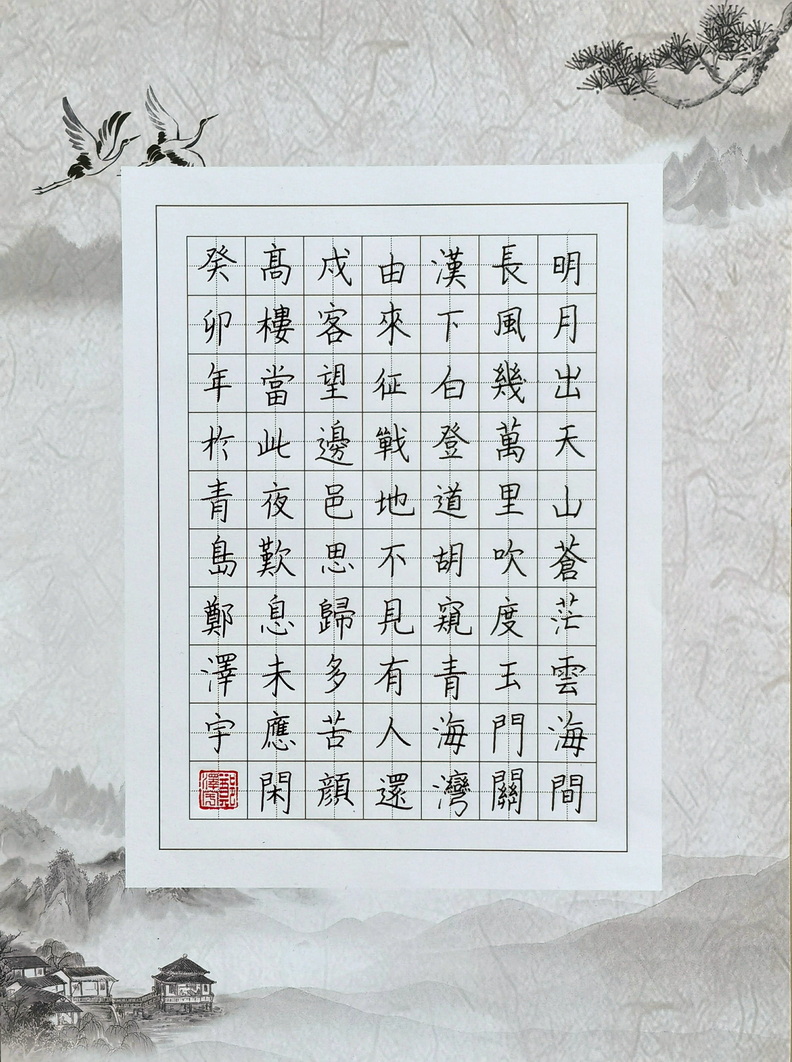 明月出天山蒼茫雲海間
長風幾萬里吹度玉門關
漢下白登道胡窺青海灣
由來征戰地不見有人還
戍客望邊邑思歸多苦顔
高樓當此夜歎息未應閑
癸卯年於青島鄭澤宇